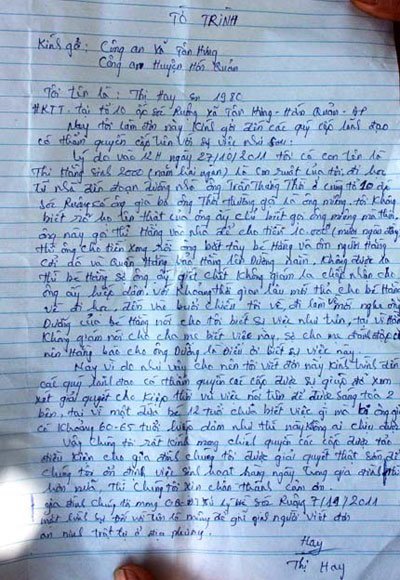 TỜ TRÌNH
Kính gởi: Công an Xã Tân Hưng
Công an Huyện Hớn Quản
Tôi tên là: Thị Hay sn 1980
HKTT: tại tổ 10 ấp Sóc Ruộng xã Tân Hưng - Hớn Quản - BP
Nay tôi làm đơn này kính gởi đến các quý cấp lãnh đạo
có thẩm quyền cấp trên với sự việc như sau:
Lý do vào 12H ngày 27/10/2011 tôi có con tên là
Thị Hằng sinh 2000 (năm hai ngàn) là con ruột của tôi, đi học
từ nhà đến đoạn đường nhà ông Trần Thắng Thô ở cùng tổ 10 ấp
Sóc Ruộng có ông già bố ông Thô thường gọi là ông miếng, tôi không
biết rõ họ tên thật của ông ấy chỉ biết gọi ông miếng mà thôi,
ông này gọi thị Hằng vào nhà để cho tiền 10.000 (mười ngàn đồng)
thì ông cho tiền xong rồi ông bắt tay bé Hằng và ôm người Hằng
cởi đồ và quần Hằng mà Hằng lên Đường nằm. Không được la
thì bé Hằng sợ ông ấy giết chết không giám la chấp nhận cho
ông ấy hiếp dâm và khoảng thời gian lâu mới thả cho bé Hằng
về đi học, đến vào buổi chiều tôi về đi làm mới nghe ông
Dưỡng của bé Hằng nói cho tôi biết sự việc như trên, tại vì Hằng
không giám nói cho cha mẹ biết việc này, sợ cha mẹ đánh đập
nên Hằng báo cho ông Dưỡng là điều ơi biết sự việc này.
Nay vì do như vậy cho nên tôi viết đơn này kính trình đến
các quý lãnh đạo có thẩm quyền các cấp được sự giúp đỡ xem
xét giải quyết cho kịp thời và việc nói trên để được sáng tỏ 2
bên, tại vì một đứa bé 12 tuổi chưa biết việc gì mà bị ông già
có khoảng 60-65 tuổi hiếp dâm như thế này ai chịu được.
Vậy chúng tôi rất kính mong chính quyền các cấp được tạo
điều kiện cho gia đình chúng tôi được giải quyết thật sớm để
chúng tôi ổn định việc sinh hoạt hàng ngày trong gia đình
hơn nữa, thì chúng tôi xin chân thành cảm ơn.
gia đình chúng tôi mong Sóc Ruộng 7/11/2011
an ninh trật tự ở địa phương. người viết đơn
Hay
Thị Hay